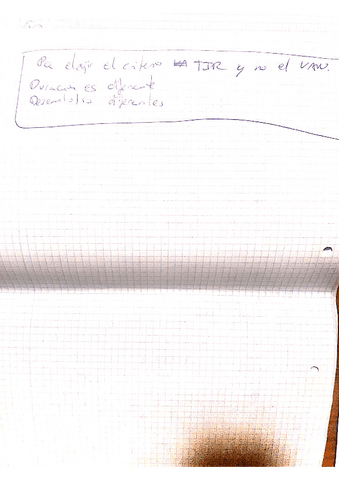 Para elegir el criterio TIR y no el VAN.
Duración es diferente
Desembolso diferentes